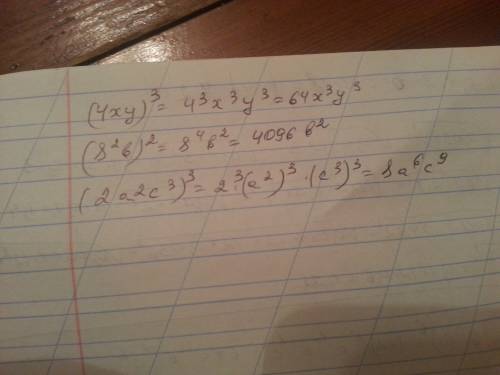 (4xy)³ = 4³x³y³ = 64x³y³
(8²b)² = 8⁴b² = 4096b²
(2a2c³)³ = 2³·(a²)³·(c³)³ = 8a⁶c⁹